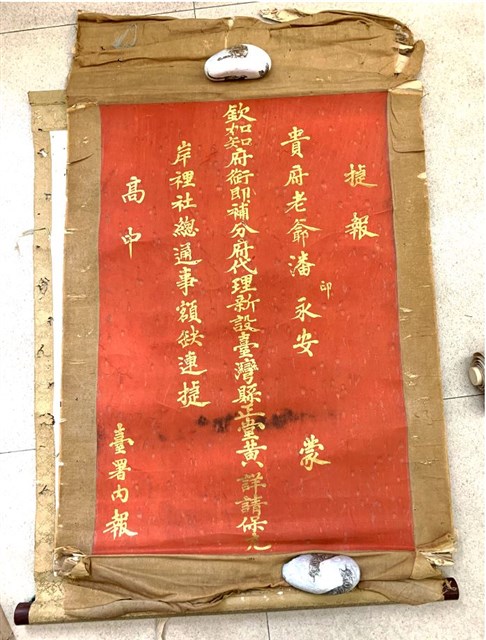 捷報
貴府老爺潘印永安 蒙
欽加知府銜即補分府代理新設臺灣縣正堂黃 詳請保充
岸裡社總通事額缺連捷
高中
臺署內報